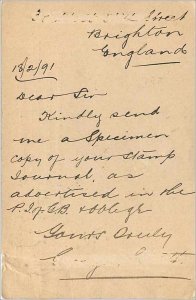 Street
Brighton
England
18/2/91
Dear Sir
Kindly send
me a Specimen
copy of your Stamp
Journal, as
advertised in the
P.J. of G.B. & oblige
Yours truly